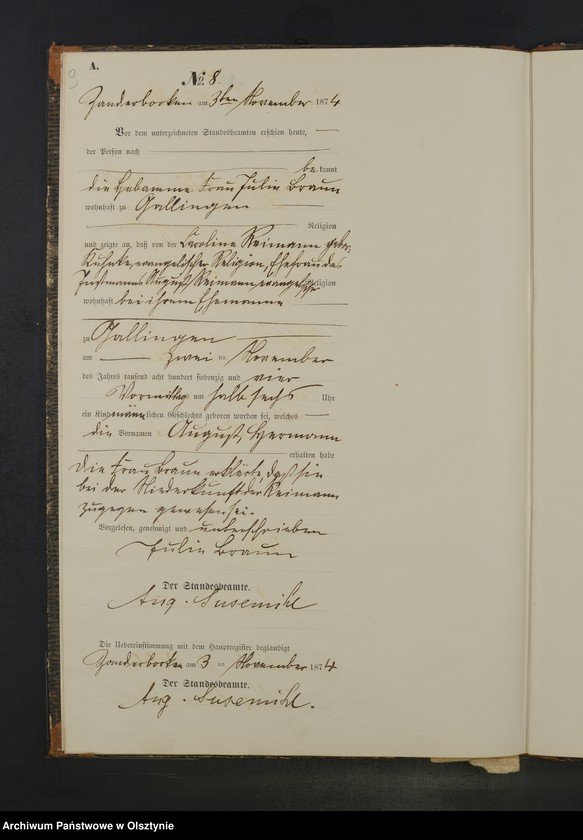 9
A.
No. 8.
Zanderborken am 3ten November 1874
Vor dem unterzeichneten Standesbeamten erschien heute,
der Person nach
bekannt
die Hebamme Frau Julie Braun
wohnhaft zu Gallingen
Religion
und zeigte an, daß von der Caroline Reimann gebor.
Kuhnke, evangelischer Religion, Ehefrau des
Instmanns August Reimann, evangelischer Religion
wohnhaft bei ihrem Ehemanne
zu Gallingen
am zwei ten November
des Jahres tausend acht hundert siebenzig und vier
Vormittags um halb sechs Uhr
ein Kind männlichen Geschlechts geboren worden sei, welches
die Vornamen August, Hermann
erhalten habe
Die Frau Braun erklärte, daß sie
bei der Niederkunft der Reimann
zugegen gewesen sei.
Vorgelesen, genehmigt und unterschrieben
Julie Braun
Der Standesbeamte.
Aug. Susemihl
Die Uebereinstimmung mit dem Hauptregister beglaubigt
Zanderborken am 3 ten November 1874
Der Standesbeamte.
Aug. Susemihl.
Archiwum Państwowe w Olsztynie